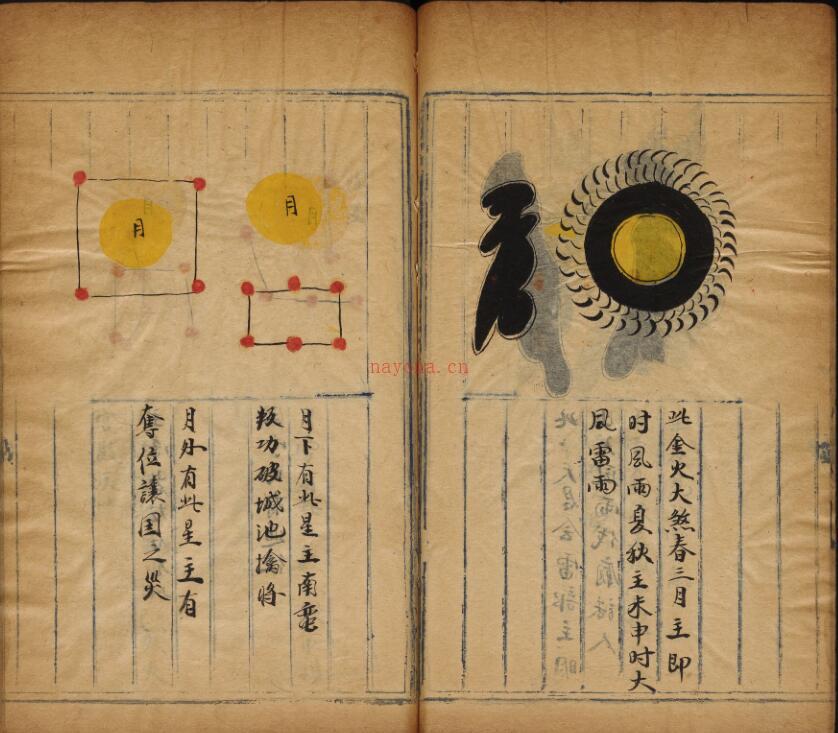 此金火大煞春三月主即
时風雨夏秋主未申时大
風雷雨
月
月下有此星主南蛮
叛功破城池擒将
月
月外有此星主有
奪位讓国之災
nayona.cn